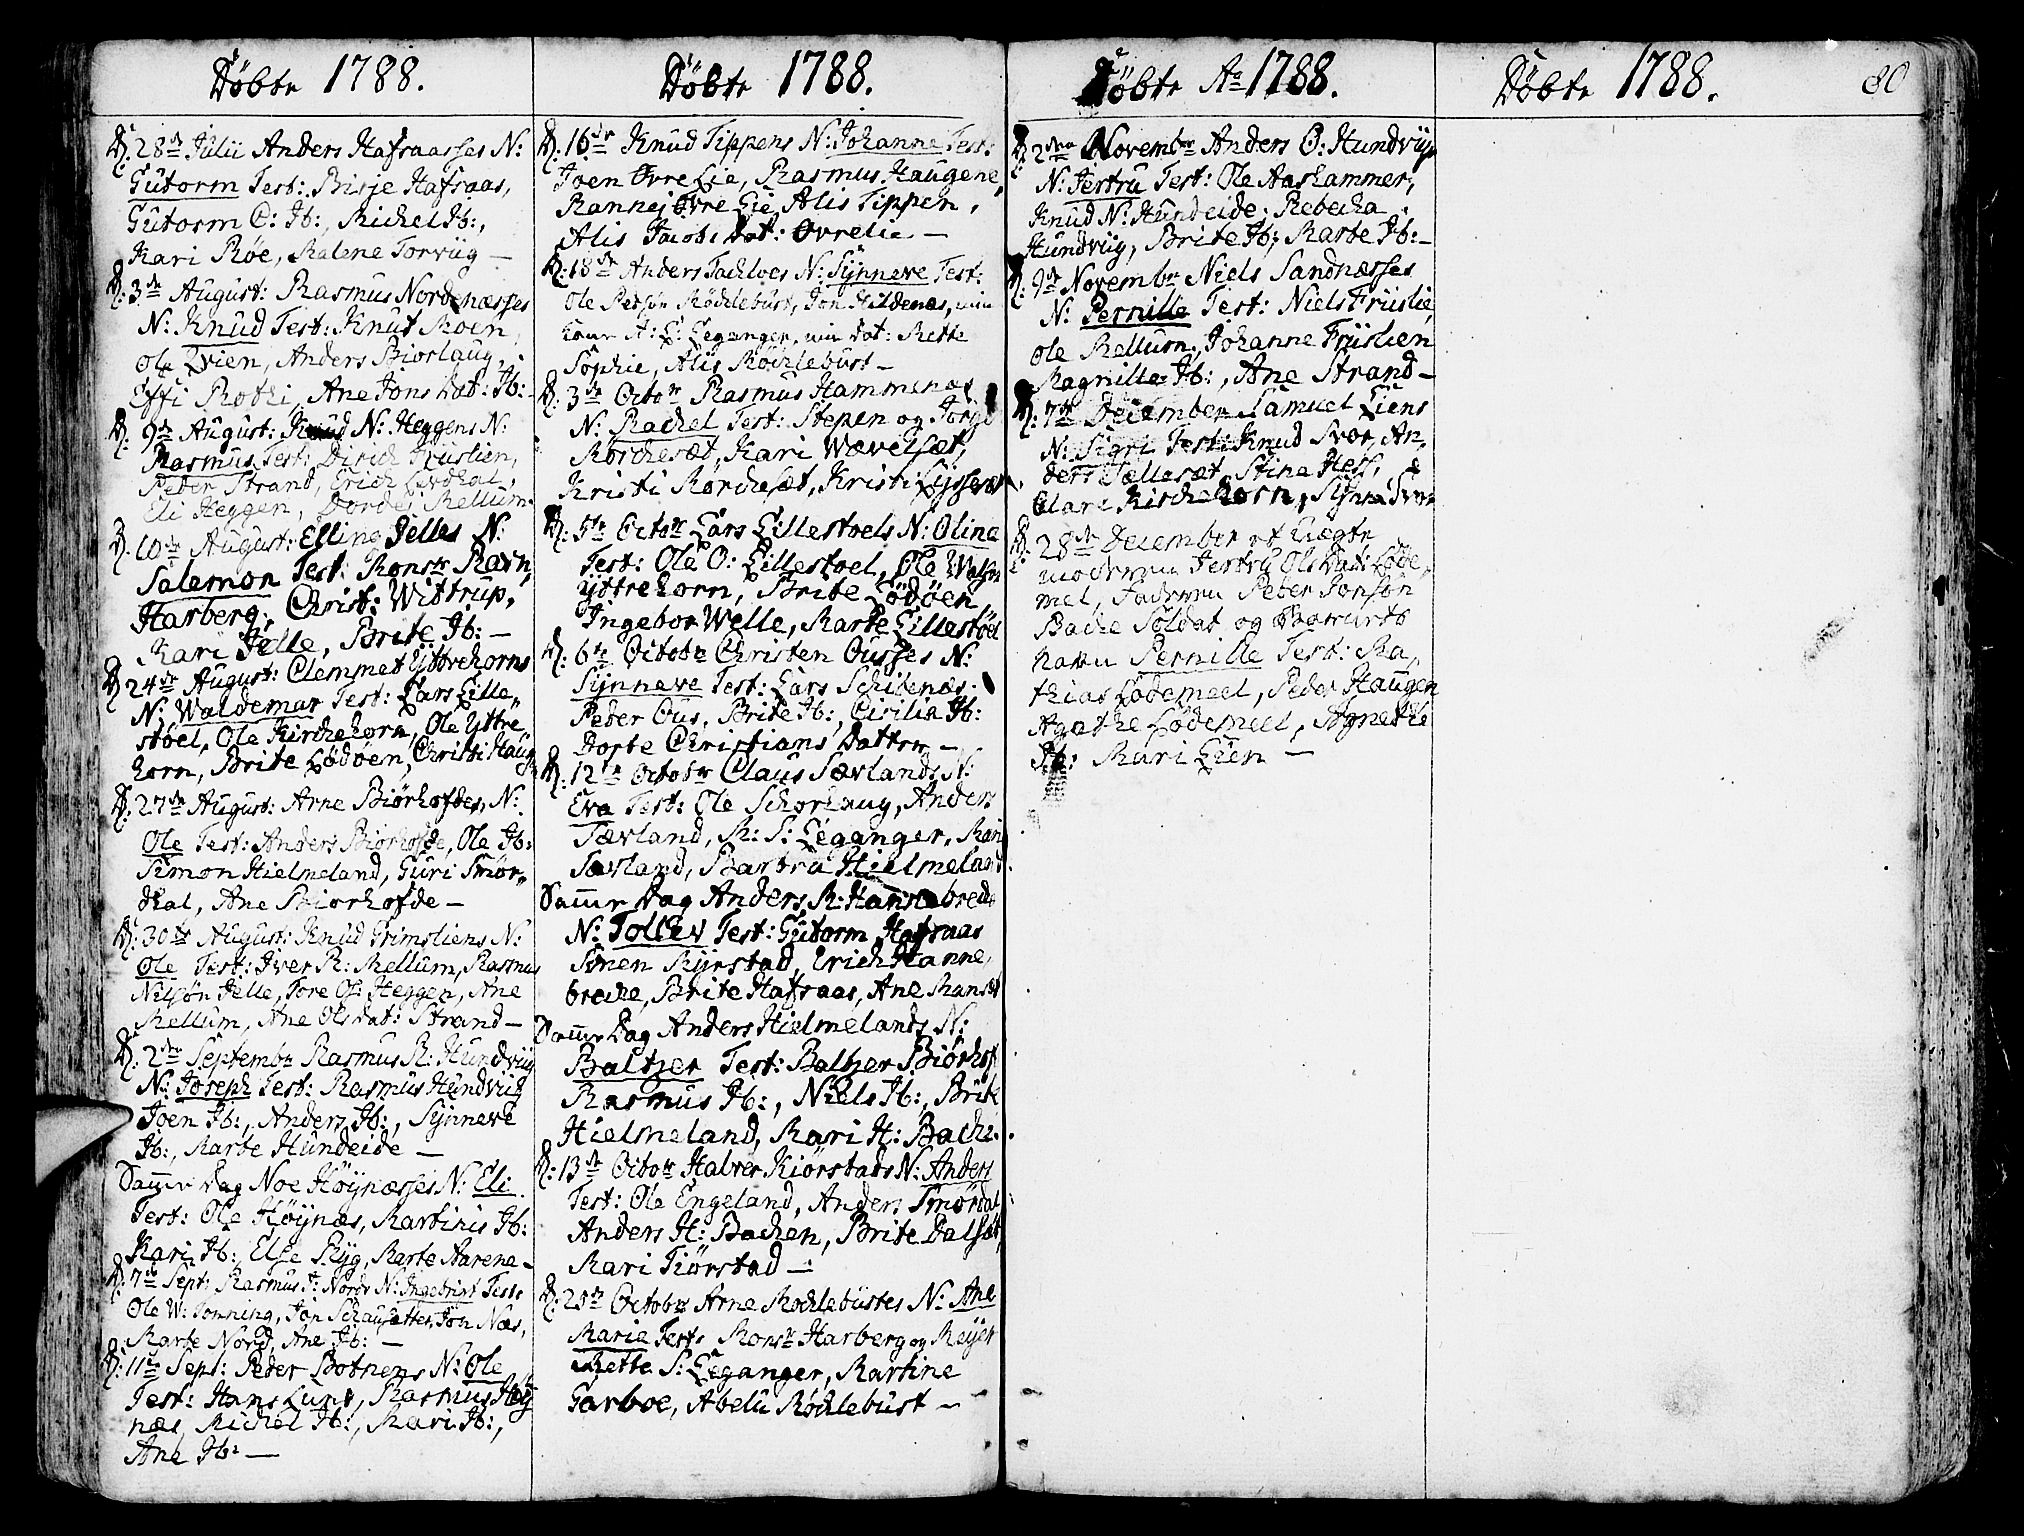 Döbte 1788.
D: 28de Julii Anders Hafraasses N:
Gutorm Test: Brite Hafraas,
Gutorm O: Ib:, Michel Ib:,
Kari Røe, Malene Torviig —
D: 3de August: Rasmus Nordenæsses
N: Knud Test: Knut Moen,
Ole Qvien, Anders Biørlaug,
Effi Rothi, Ane Jons Dat: Ib:
D: 9de August: Knud N: Heggens N:
Rasmus Test: Dirich Friislien,
Peder Strand, Erich Lerdhal,
Eli Heggen, Dordei Mellum.
D: 10de August: Elling Jelles N:
Salemon Test: Monsr Ravn,
Harberg, Christ: Wittrup,
Mari Jelle, Brite Ib: —
D: 24de August: Clemmet Yttrehorns
N: Waldemar Test: Lars Lille,
støel, Ole Kirchehorn, Ole Yttre
horn, Brite Lødøen, Christi Haug
D: 27de August: Arne Biørhofdes, N:
Ole Test: Anders Biørhofde, Ole Ib:
Simon Hielmeland, Guri Smør,
dhal, Ane Biørhofde —
D: 30te August: Knud Grimsliens N:
Ole Test: Iver R: Mellum, Rasmus
Nilsøn Jelle, Tore Ol: Heggen, Ane
Mellum, Ane Olsdat: Strand —
D: 2den Septembr Rasmus R: Hundviig
N: Joseph Test: Rasmus Hundviig
Joen Ib:, Anders Ib:, Synneve
Ib:, Marte Hundeide —
Samme Dag Noe Høynæsses N: Eli
Test: Ole Høynæs, Martinis Ib:
Kari Ib: Else Ryg, Marte Aarenæ
D: 7de Sept: Rasmus I: Nords N: Ingebrigt Test:
Ole W: Tonning, Jon Schausetter, Jon Næs,
Marte Nord, Ane Ib: —
D: 11te Sept: Peder Botnens N: Ole
Test: Hans Lunt, Rasmus Høy
næs, Michel Ib:, Mari Ib:,
Ane Ib: —
Döbte 1788.
D: 16de Knud Tippens N: Johanne Test:
Joen Øvre Lie, Rasmus Haugene,
Rannei Øvre Lie Alis Tippen,
Alis Jacobs Dat: Øvrelie —
D: 18de Anders Tachloes N: Synneve Test:
Ole Pedsøn Møchlebust, Jon Hildenæs, min
Kone A: L: Leganger, min Dat: Mette
Sophie, Alis Møchlebust —
D: 3de Octobr Rasmus Hammenæs
N: Rachel Test: Stepen og Torgd
Rørchesæt, Kari Wævelsæt,
Kristi Rørchesæt, Kristi Lysse
D: 5te Octobr Lars Lillestoels N: Olina
Test: Ole O: Lillestoel, Ole
Yttrehorn, Brite Lødøen
Ingebor Welle, Marte Lillestøel
D: 6te Octobr Christen Ousses N:
Synneve Test: Lars Schibenæs
Peder Ous, Brite Ib:, Cicilia Ib:
Dorte Christians Datter —
D: 12te Octobr Claus Sævlands N:
Eva Test: Ole Schorhaug, Anders
Sævland, M: S: Leganger, Mari
Sævland, Bartru Hielmeland
Samme Dag Anders R: Hannebrede
N: Tollev Test: Gutorm Hafraas
Simen Myrstad, Erich Hanne,
breche, Brite Hafraas, Ane
Samme Dag Anders Hielmelands N:
Baltzer Test: Baltzer Biørhof
Rasmus Ib:, Niels Ib:, Brite
Hielmeland, Mari H: Bache
D: 13de Octobr Halver Kiørstads N: Anders
Test: Ole Engeland, Anders Smørdal
Anders H: Bachen, Brite Dalsæt
Mari Kiørstad —
D: 25de Octobr Arne Mochlebustes N: Ane
Marie Test: Monsr Harberg og Meyer
Mette S: Leganger, Martine
Garboe, Abelu Møchlebust —
Döbte Ao 1788.
D: 2den Novembr Anders O: Hundviigs
N: Jertru Test: Ole Aashammer,
Knud N: Hundeide, Rebecha
Hundviig, Brite Ib: Marte Ib: —
D: 9de Novembr Niels Sandnæsses
N: Pernille Test: Niels Friislie,
Ole Mellum, Johanne Friislien
Magnille Ib:, Ane Strand —
D: 7de December Samuel Liens
N: Sigri Test: Knud Svor, An,
ders Tællesæt, Stina Hess,
Clari Kirchehorn, Synni Svor
D: 28de December et Uægte
moderen Jertru Olsdat: Løde,
mel, Faderen Peder Jonsøn
Bache Soldat og Barnets
Navn Pernille Test: Ma,
thias Lødemeel, Peder Haugen
Agathe Lødemeel, Agnethe
Ib: Mari Lien —
Döbte 1788.
80